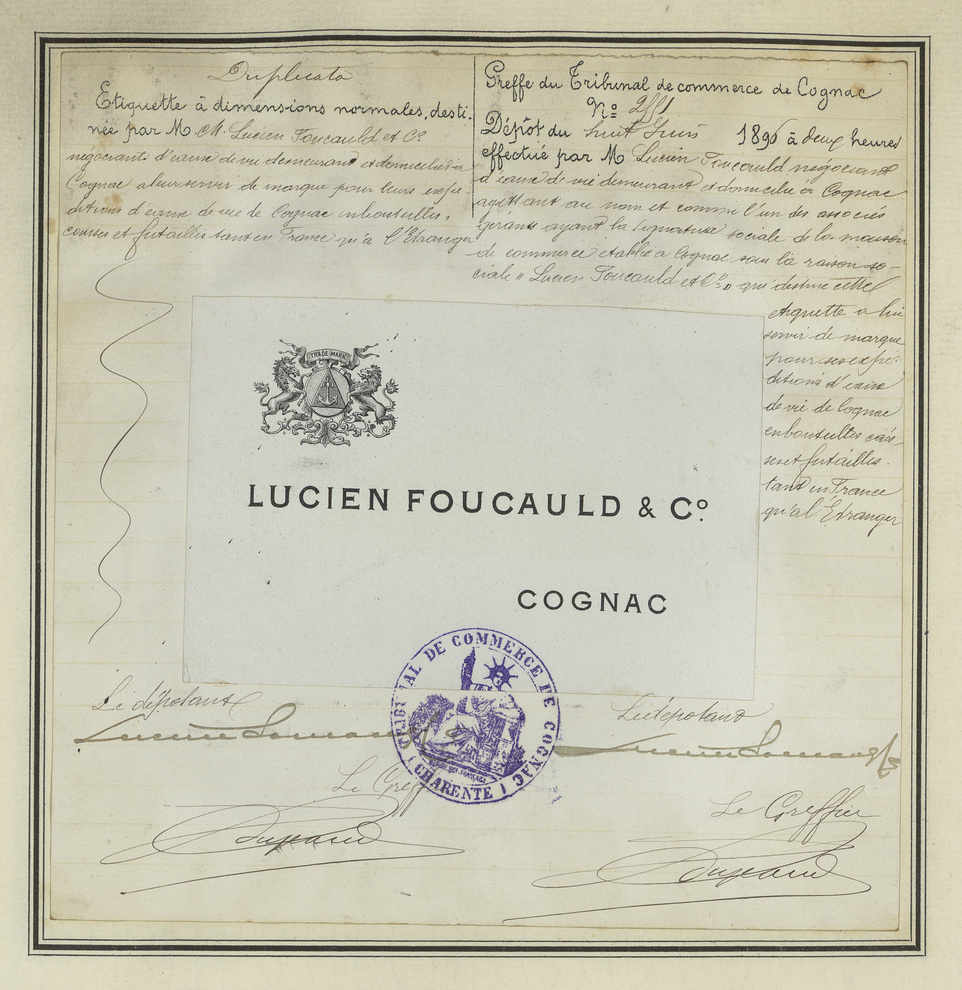 Duplicata
Etiquette à dimensions normales, desti-
née par M. M. Lucien Foucauld et Co
négociants d'eaux de vie demeurant et domiciliés à
Cognac a leur servir de marque pour leurs expé
ditions d'eaux de vie de Cognac en bouteilles,
caisses et futailles tant en France qu'à l'Etranger
Greffe du Tribunal de commerce de Cognac
No
Dépôt du huit Juin 1896 à deux heures
effectué par M Lucien Foucauld négociant
d'eaux de vie demeurant et domicilié à Cognac
agissant au nom et comme l'un des associés
gérants ayant la signature sociale de la maison
de commerce établie à Cognac sous la raison so-
ciale " Lucien Foucauld et Co " qui destine cette
étiquette a lui
servir de marque
pour ses expé-
ditions d'eaux
de vie de Cognac
en bouteilles cais-
ses et futailles.
tant en France
qu'à l'Étranger
TRADE MARK
LUCIEN FOUCAULD & Co.
COGNAC
TRIBUNAL DE COMMERCE DE COGNAC
( CHARENTE )
Le déposant
Le déposant
Le Greff
Le Greffier